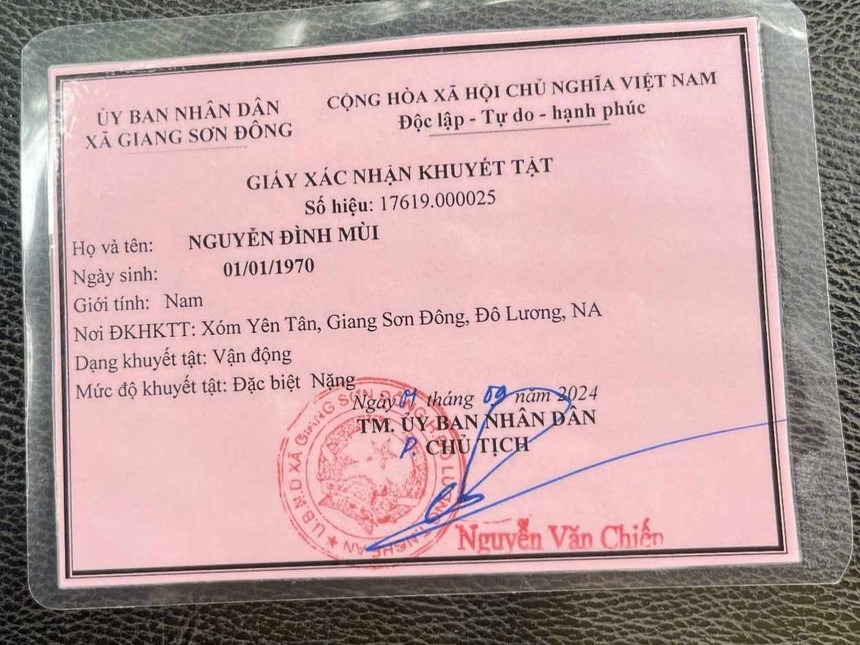 ỦY BAN NHÂN DÂN
XÃ GIANG SƠN ĐÔNG
CỘNG HÒA XÃ HỘI CHỦ NGHĨA VIỆT NAM
Độc lập - Tự do - hạnh phúc
GIẤY XÁC NHẬN KHUYẾT TẬT
Số hiệu: 17619.000025
Họ và tên: NGUYỄN ĐÌNH MÙI
Ngày sinh: 01/01/1970
Giới tính: Nam
Nơi ĐKHKTT: Xóm Yên Tân, Giang Sơn Đông, Đô Lương, NA
Dạng khuyết tật: Vận động
Mức độ khuyết tật: Đặc biệt Nặng
Ngày tháng 09 năm 2024
TM. ỦY BAN NHÂN DÂN
P. CHỦ TỊCH
U.B.N.D XÃ GIANG SƠN ĐÔNG LƯƠNG NGHỆ AN
Nguyễn Văn Chiến